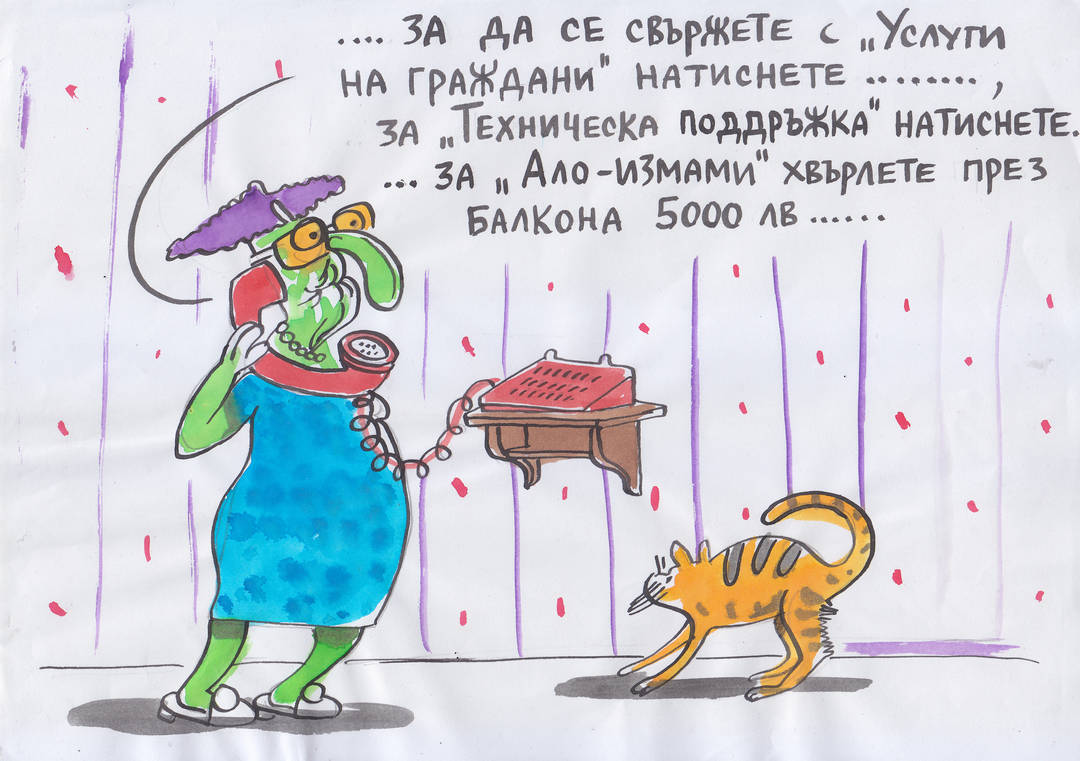 .... ЗА ДА СЕ СВЪРЖЕТЕ С „УСЛУГИ
НА ГРАЖДАНИ" НАТИСНЕТЕ .........,
ЗА „ТЕХНИЧЕСКА ПОДДРЪЖКА" НАТИСНЕТЕ.
... ЗА „АЛО-ИЗМАМИ" ХВЪРЛЕТЕ ПРЕЗ
БАЛКОНА 5000 ЛВ......